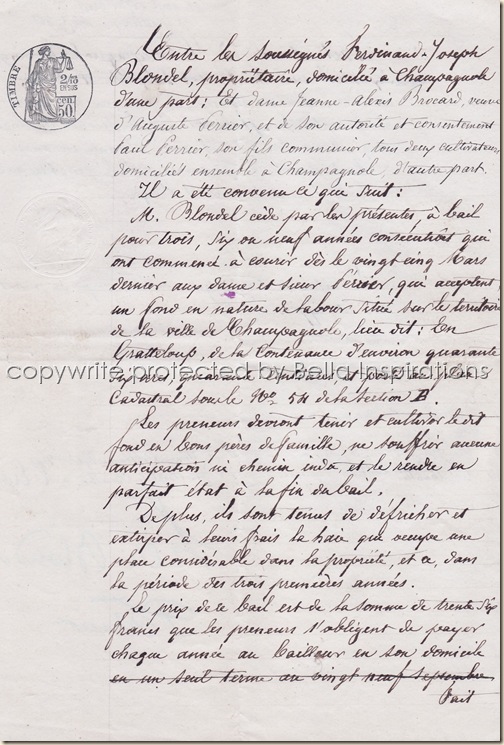 TIMBRE
2/10
EN SUS
50c
Entre les soussignés Ferdinand-Joseph
Blondel, propriétaire, domicilié à Champagnole
d'une part; Et dame Jeanne-Alexis Brocard, veuve
d'Auguste Perrier, et de son autorité et consentement
Paul Perrier, son fils communier, tous deux cultivateurs
domiciliés ensemble à Champagnole, d'autre part.
Il a été convenu ce qui suit:
M. Blondel cède par les présentes, à bail
pour trois, six ou neuf années consécutives qui
ont commencé à courir dès le vingt cinq Mars
dernier aux dame et sieur Perrier, qui acceptent
un fond en nature de labour situé sur le territoire
de la ville de Champagnole, lieu dit: En
Gratteloup, de la contenance d'environ quarante
quarante centiares et porté au plan
Cadastral sous le No 54 de la Section B.
Les preneurs devront tenir et cultiver le dit
fond en bons pères de famille, ne souffrir aucune
anticipation ni chemin indu, et le rendre en
parfait état à la fin du bail.
De plus, ils sont tenus de défricher et
extirper à leurs frais la haie qui occupe une
place considérable dans la propriété, et ce, dans
la période des trois premières années.
Le prix de ce bail est de la somme de trente six
francs que les preneurs s'obligent de payer
chaque année au bailleur en son domicile
en un seul terme au vingt neuf Septembre
Fait
copywrite protected by Bella Inspirations